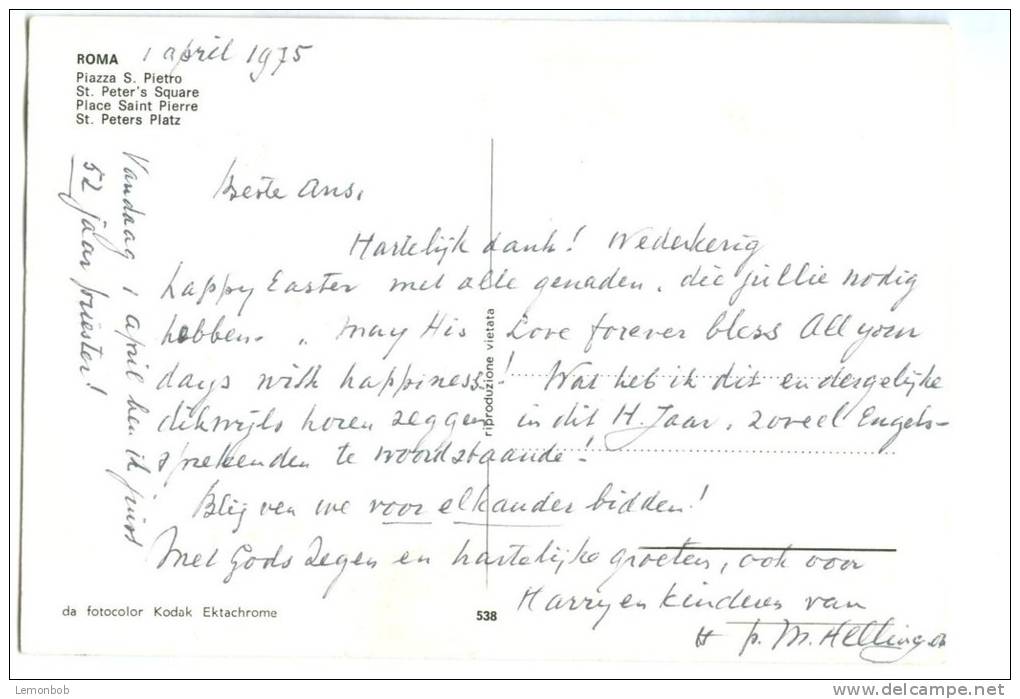 ROMA 1 april 1975
Piazza S. Pietro
St. Peter's Square
Place Saint Pierre
St. Peters Platz
Beste Ans,
Hartelijk dank! Wederkerig
happy Easter met alle genaden, die jullie nodig
hebben. "May His Love forever bless All your
days with happiness! Wat heb ik dit en dergelijke
dikwijls horen zeggen in dit H. Jaar, zoveel Engels-
sprekenden te woordstaande!
Blijven we voor elkander bidden!
Met Gods Zegen en hartelijke groeten, ook voor
Harry en kinderen van
p. M.
Vandaag 1 april ben ik juist
52 jaar priester!
riproduzione vietata
da fotocolor Kodak Ektachrome
538
Lemonbob
delcampe.net